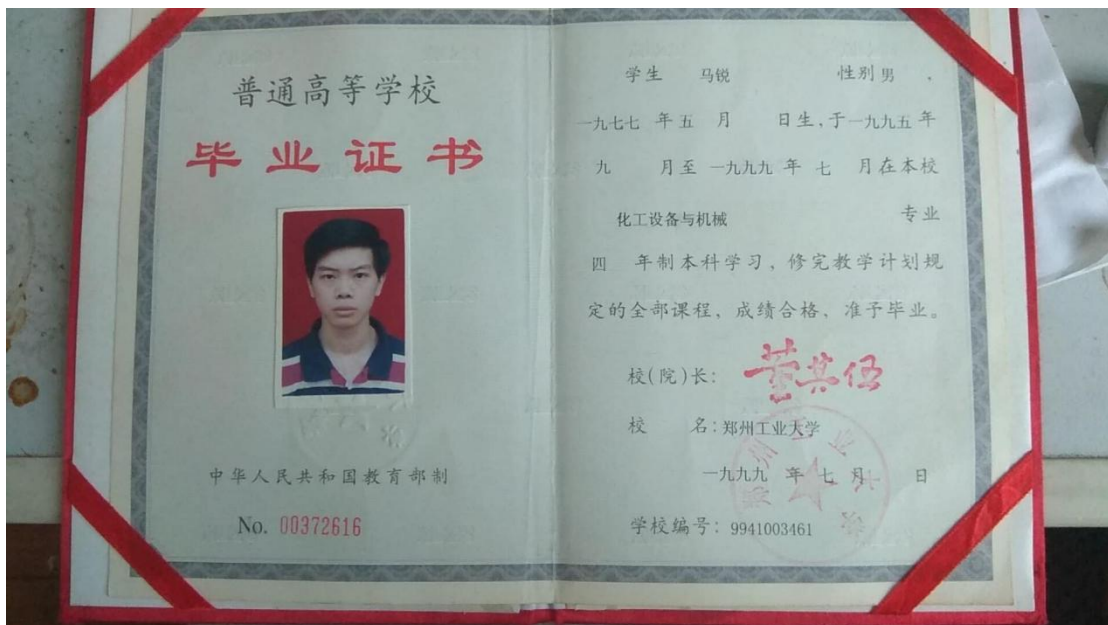 普通高等学校
毕业证书
中华人民共和国教育部制
No. 00372616
学生 马锐 性别 男 ，
一九七七 年 五 月 日生，于一九九五 年
九 月至 一九九九 年 七 月在本校
化工设备与机械 专业
四 年制本科学习，修完教学计划规
定的全部课程，成绩合格，准予毕业。
校(院)长： 董其伍
校 名：郑州工业大学
一九九九 年 七 月 日
学校编号：9941003461